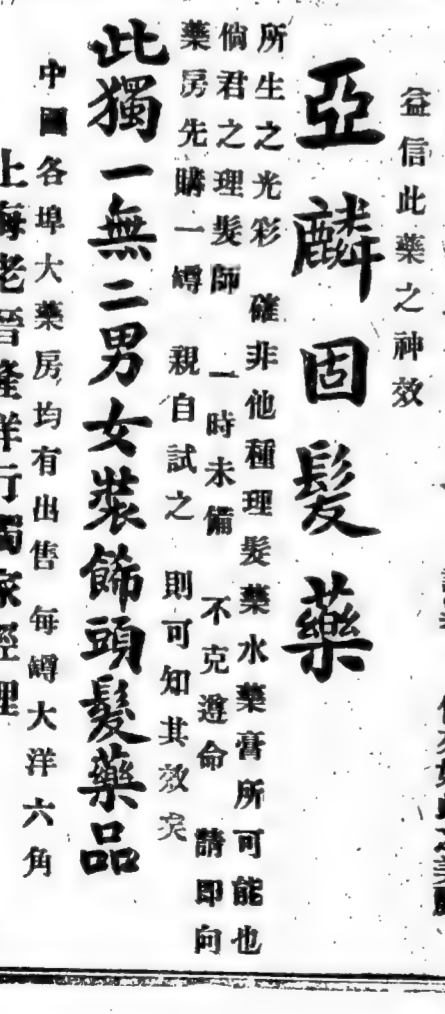 益信此藥之神效
亞麟固髮藥
所生之光彩 確非他種理髮藥水藥膏所可能也
倘君之理髮師 一時未備 不克遵命 請即向
藥房先購一罇 親自試之 則可知其效矣
此獨一無二男女裝飾頭髮藥品
中國各埠大藥房均有出售 每罇大洋六角
上海老晉隆洋行獨家經理